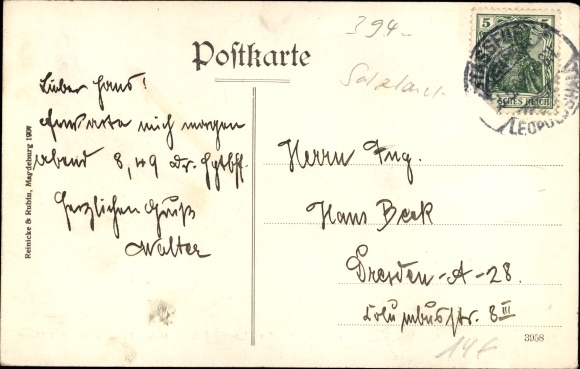 394.-
Postkarte
5 5
DEUTSCHES REICH
STASSFURT
LEOPOLDSHALL
Lieber Hans!
Erwarte mich morgen
abend 8,49 Dr. Hptbhf.
Herzlichen Gruß
Walter
Herrn Ing.
Hans Beck
Dresden-A-28.
Columbusstr. 8 III
3958
14 €
Reinicke & Rubin, Magdeburg 1909